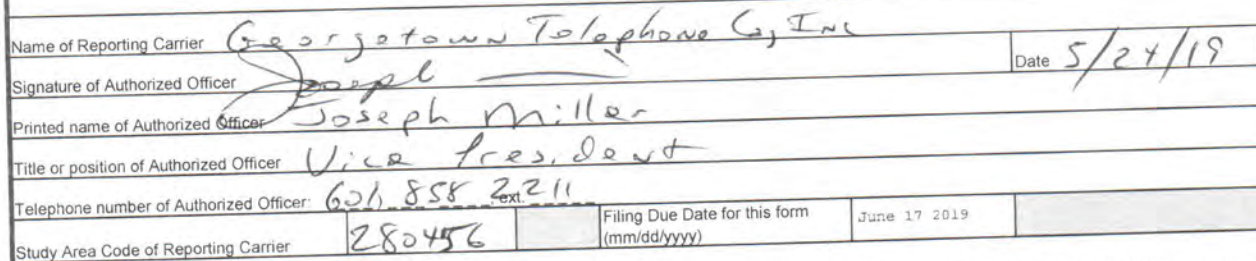 Name of Reporting Carrier Georgetown Telephone Co, Inc
Signature of Authorized Officer Joseph Date 5/24/19
Printed name of Authorized Officer Joseph Miller
Title or position of Authorized Officer Vice President
Telephone number of Authorized Officer: 601 858 2211 ext.
Study Area Code of Reporting Carrier 280456 Filing Due Date for this form (mm/dd/yyyy) June 17 2019